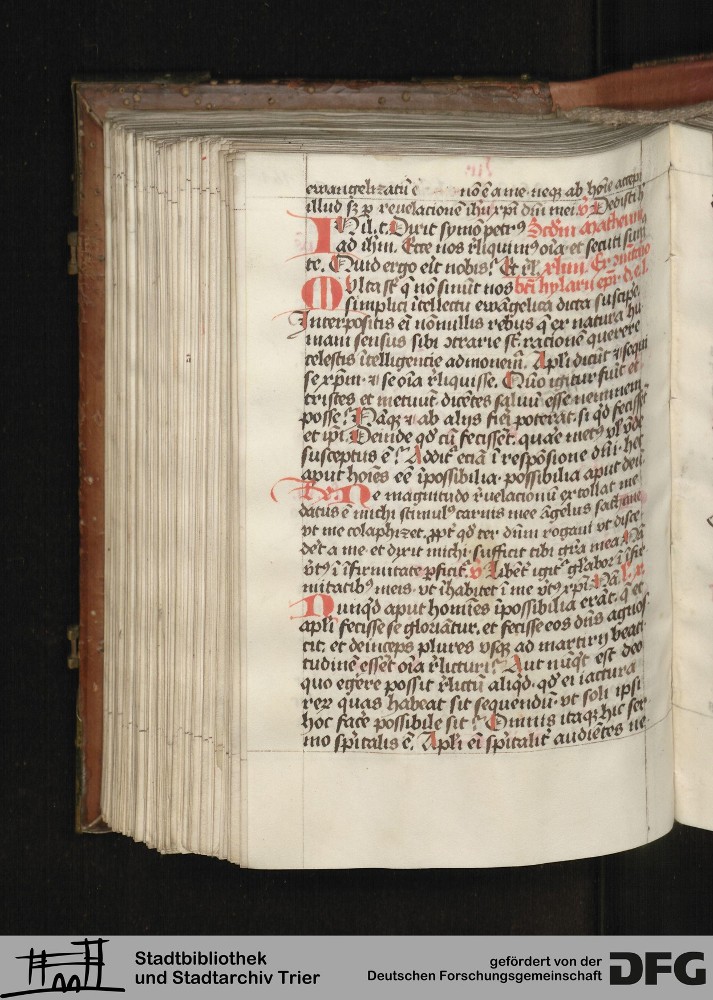 ewangelizatū ē nō ē a me neqz ab hoīe accepi
illud sz ꝑ reuelacione ihu xpi dm̄ mei v Dedisti h
In il. t. Dixit symō petrꝰ Scdm Matheum
ad ihm. Ecce nos rliquimꝰ oīa et secuti sumꝰ
te. Quid ergo erit nobis? Et rl. xliiii. Ex omel
Multa sūt q nō sinūt nos bti hylarii epi. d. e. l.
simplici ītellectu ewāgelica dicta suscipe.
Interpositis eī nōnullis rebus q ex natura hu
mani sensus sibi ɔtrarie st. racionē querere
celestis ītelligencie admonem. Apli dicūt se sequi
se xpm. et se oīa rliquisse. Quō igitur sunt et
tristes et metuūt dicētes saluū esse neminem
posse? Nāqz et ab alijs fieri poterāt. si qd fecissēt
et ipi. Deinde qd cū fecissēt. quā e metꝰ vl vn̄de
susceptus ē? Addit eciā ī respōsione dn̄i. hec
aput hoīes eē īpossibilia. possibilia aput deū
Ne magnitudo reuelacionū extollat me
datus ē michi stimulꝰ carnis mee āgelus sathane
vt me colaphizet. ꝓpt qd ter dūm rogaui vt disce
det a me. et dixit michi sufficit tibi gra mea Nā
vtꝰ ī īfirmitate ꝑficit. v Libēt igit glabor ī īfir
mitatibꝰ meis. vt īhabitet ī me vtꝰ xpi. Nā. l. x.
Nunqd aput homies īpossibilia erāt. q et
apli fecisse se gloriātur. et fecisse eos dn̄s agnos
cit. et deinceps plures vsqz ad martirij beati
tudinē essēt oīa rlicturi? Aut nūqt est deo
quo egere possit rlictū aliqd. qd ei iactura
rerz quas habeat sit sequendū. vt soli ipsi
hoc face possibile sit? Omnis itaqz hic ser
mo spitalis ē. Apli eī spitalit audiētes ne
Stadtbibliothek
und Stadtarchiv Trier
gefördert von der
Deutschen Forschungsgemeinschaft
DFG